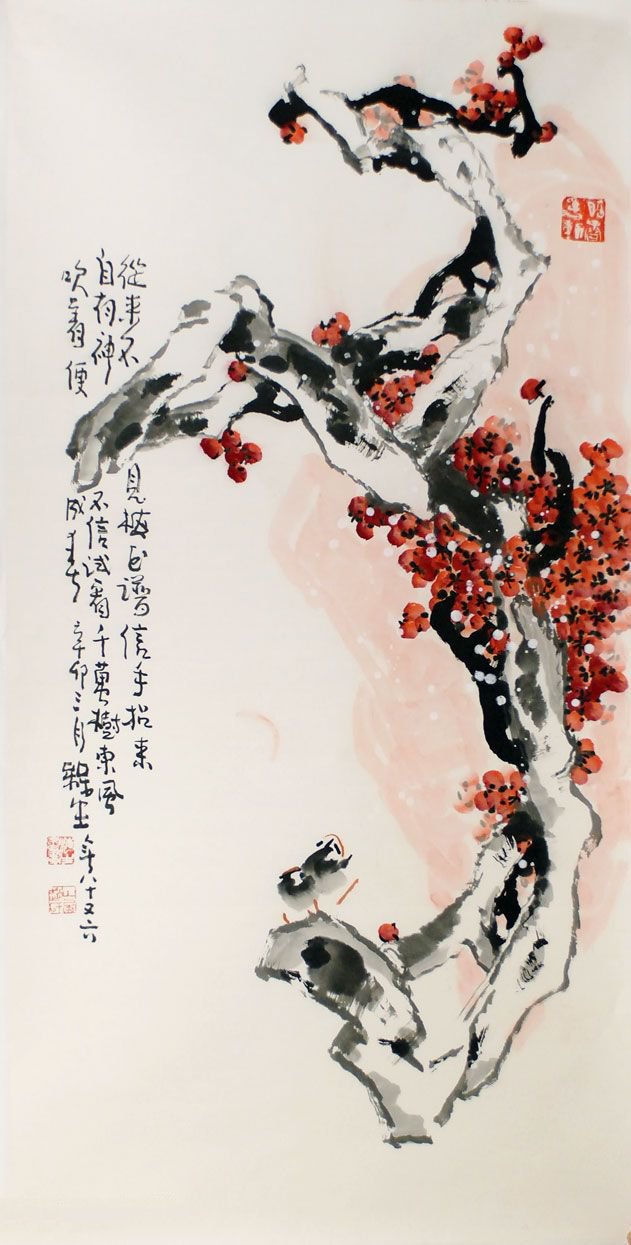 從來不見梅花譜信手拈來
自有神不信試看千萬樹東風
吹着便成春辛卯三月
年八十又六
暗香浮動